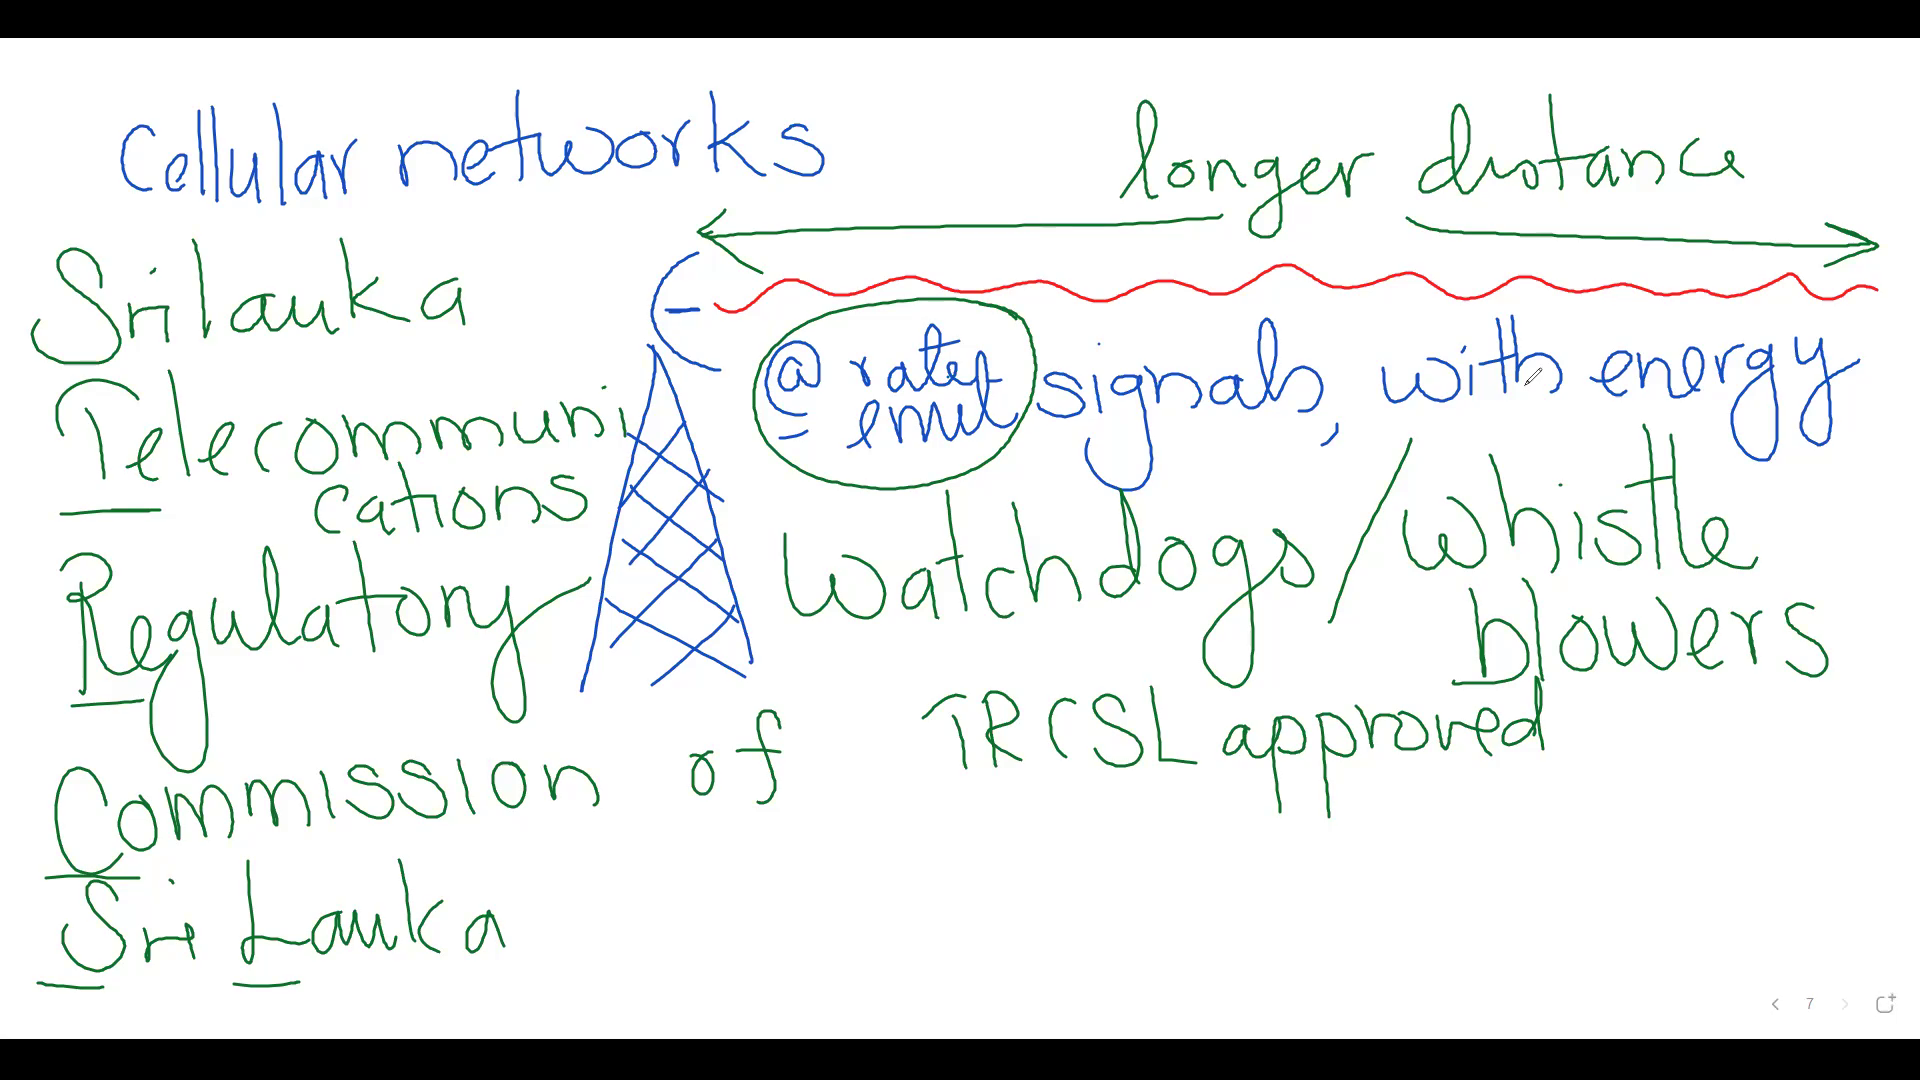 Cellular networks
longer distance
Sri Lanka
Telecommuni
cations
Regulatory
Commission of
Sri Lanka
@ rates
emit signals, with energy
Watchdogs / whistle
blowers
TRCSL approved
7